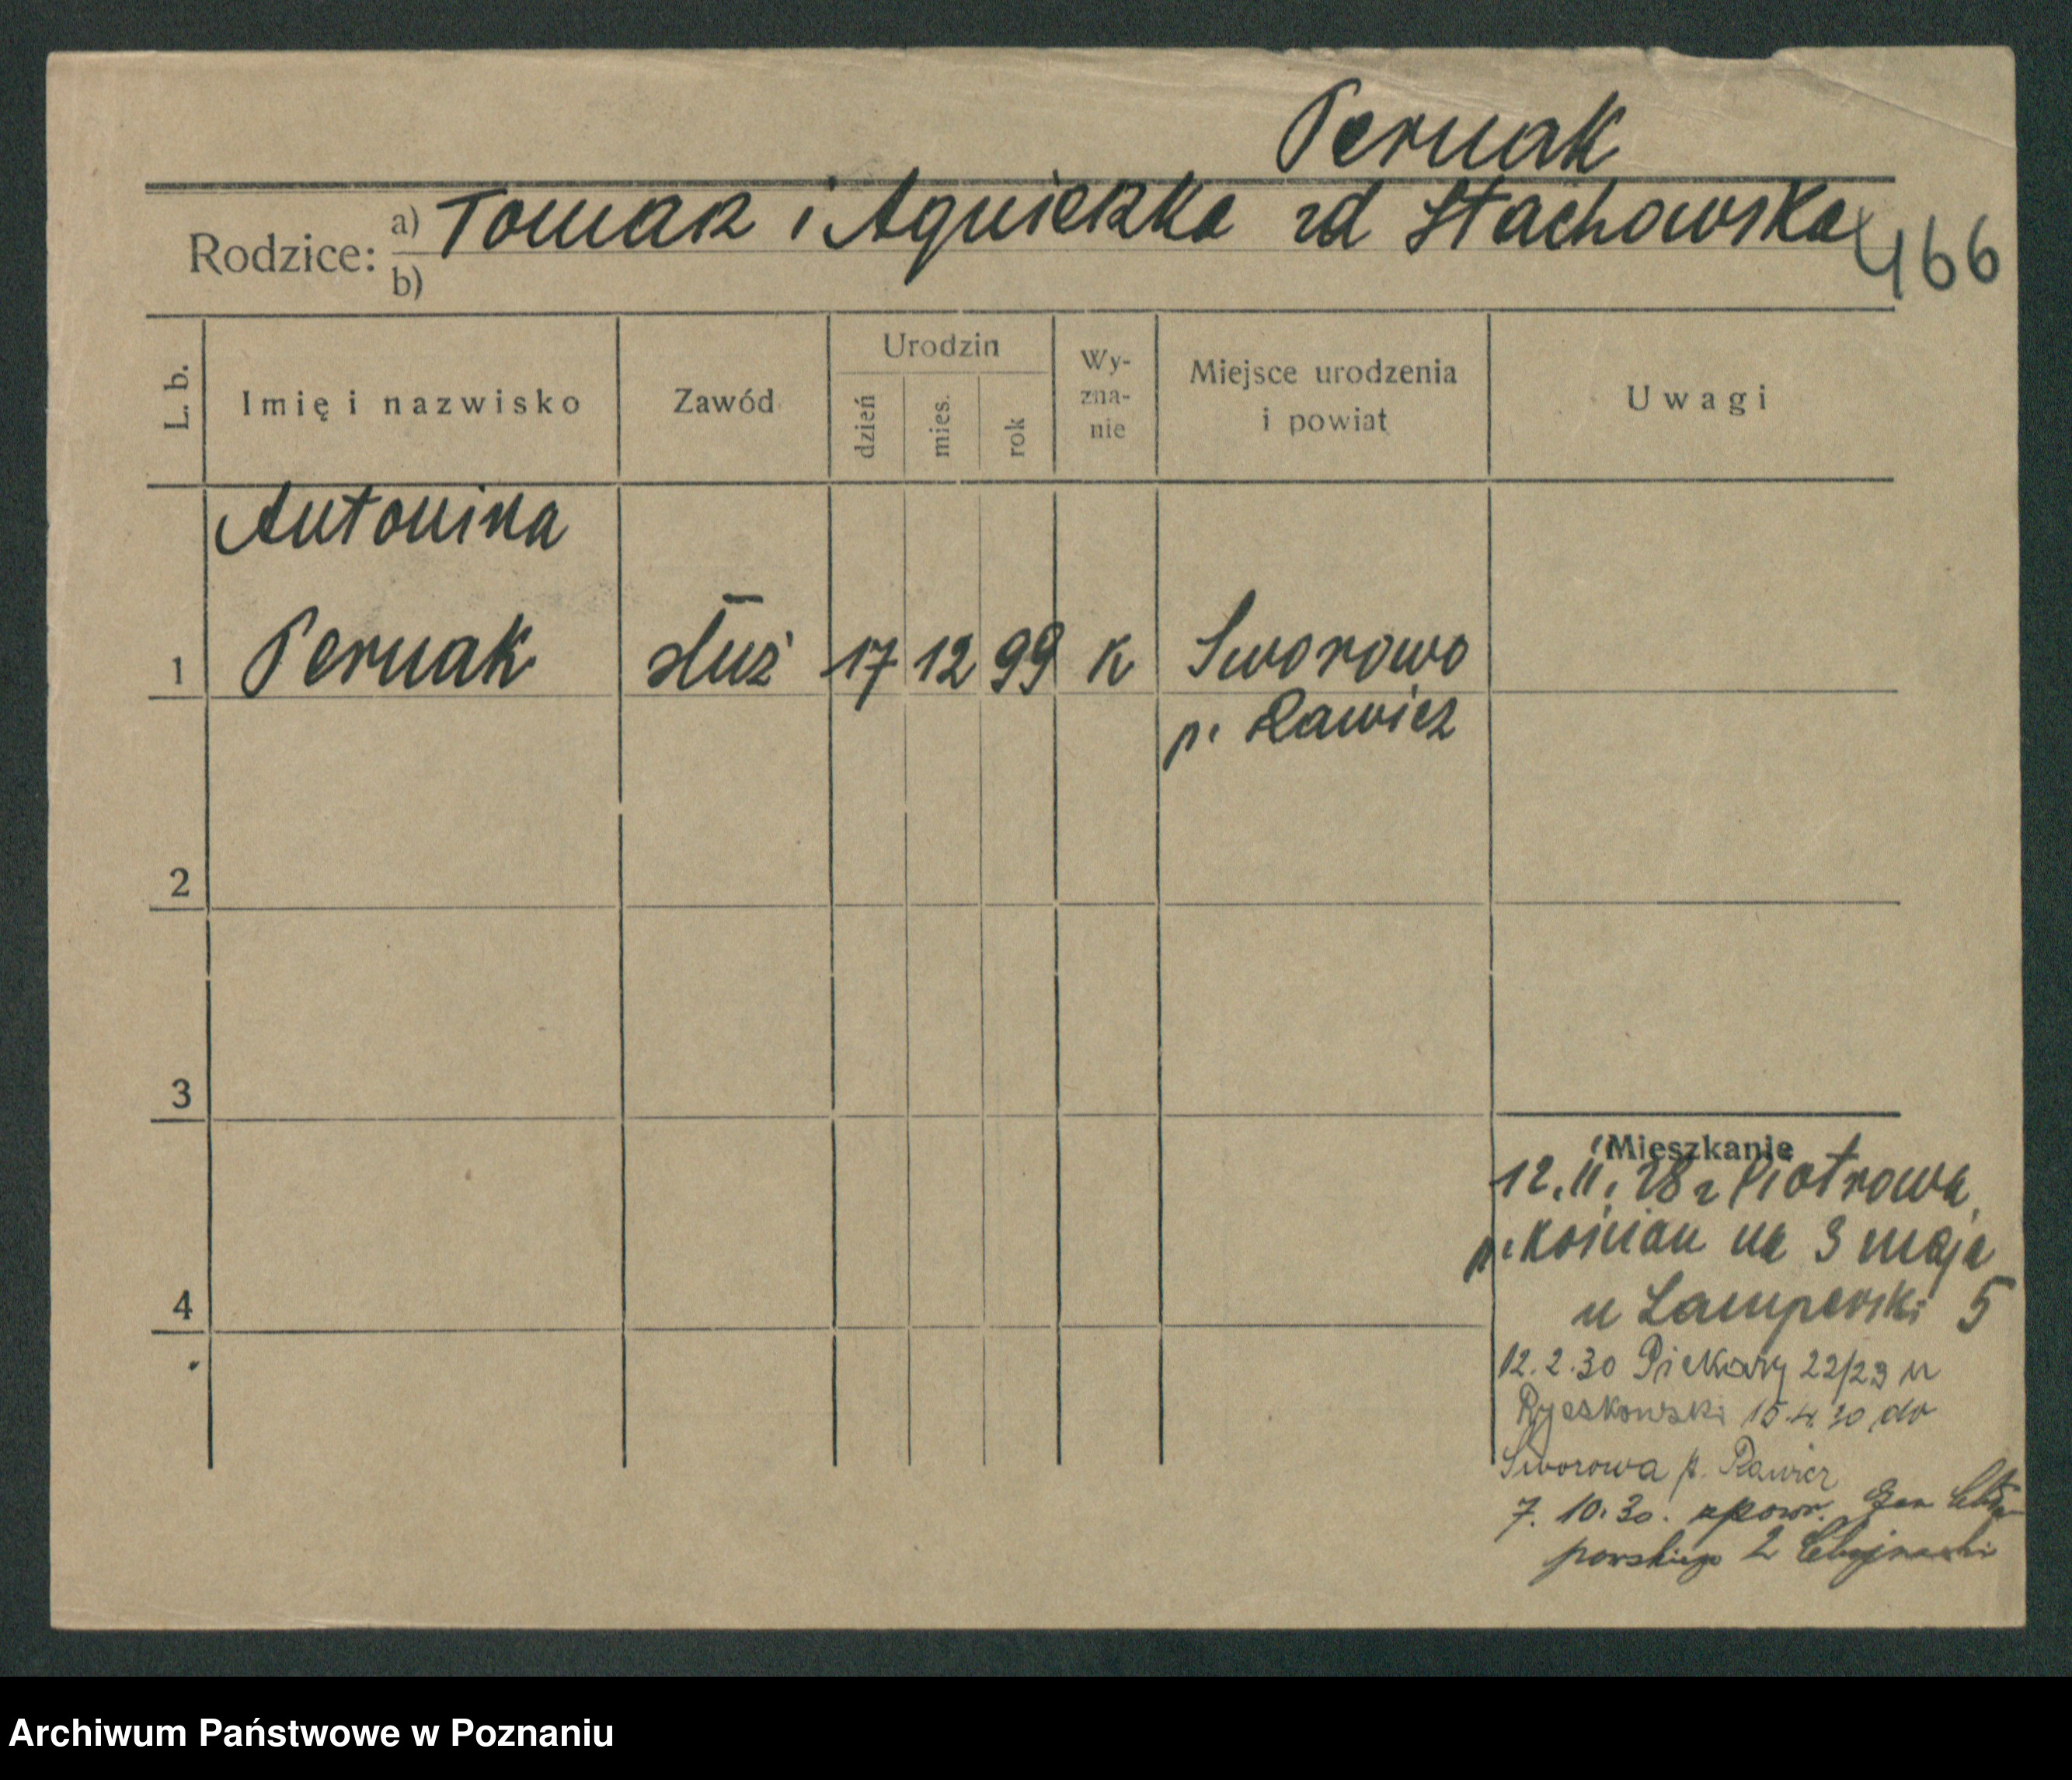 Pernak
Rodzice: a) Tomasz i Agnieszka zd Stachowska
b)
466
L. b.
Imię i nazwisko
Zawód
Urodzin
dzień
mies.
rok
Wy-
zna-
nie
Miejsce urodzenia
i powiat
Uwagi
Antonina
1 Pernak służ 17 12 99 k Sworowo
p. Rawicz
2
3
4
Mieszkanie
12.11.28 z Piotrowa
p. Kościan na 3 maja
u Lamperski 5
12.2.30 Piekary 22/23 u
15.4.30 do
Sworowa p. Rawicz
7.10.30. spowr. Gen Chła-
powskiego 2 Chojnacki
Archiwum Państwowe w Poznaniu